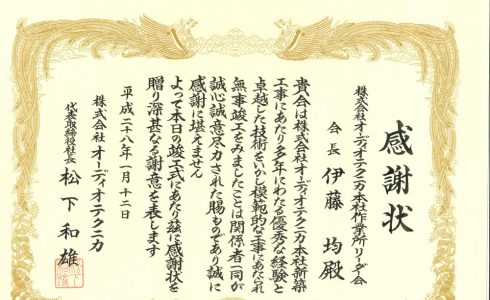 感謝状
株式会社オーディオテクニカ本社作業所リーダー会
会長 伊藤 均殿
貴会は株式会社オーディオテクニカ本社新築
工事にあたり多年にわたる優秀な経験と
卓越した技術をいかし模範的な工事にあたられ
無事竣工をみましたことは関係者一同が
誠心誠意尽力された賜ものであり誠に
感謝に堪えません
よって本日の竣工式にあたり茲に感謝状を
贈り深甚なる謝意を表します
平成二十八年一月十二日
株式会社オーディオテクニカ
代表取締役社長 松下和雄